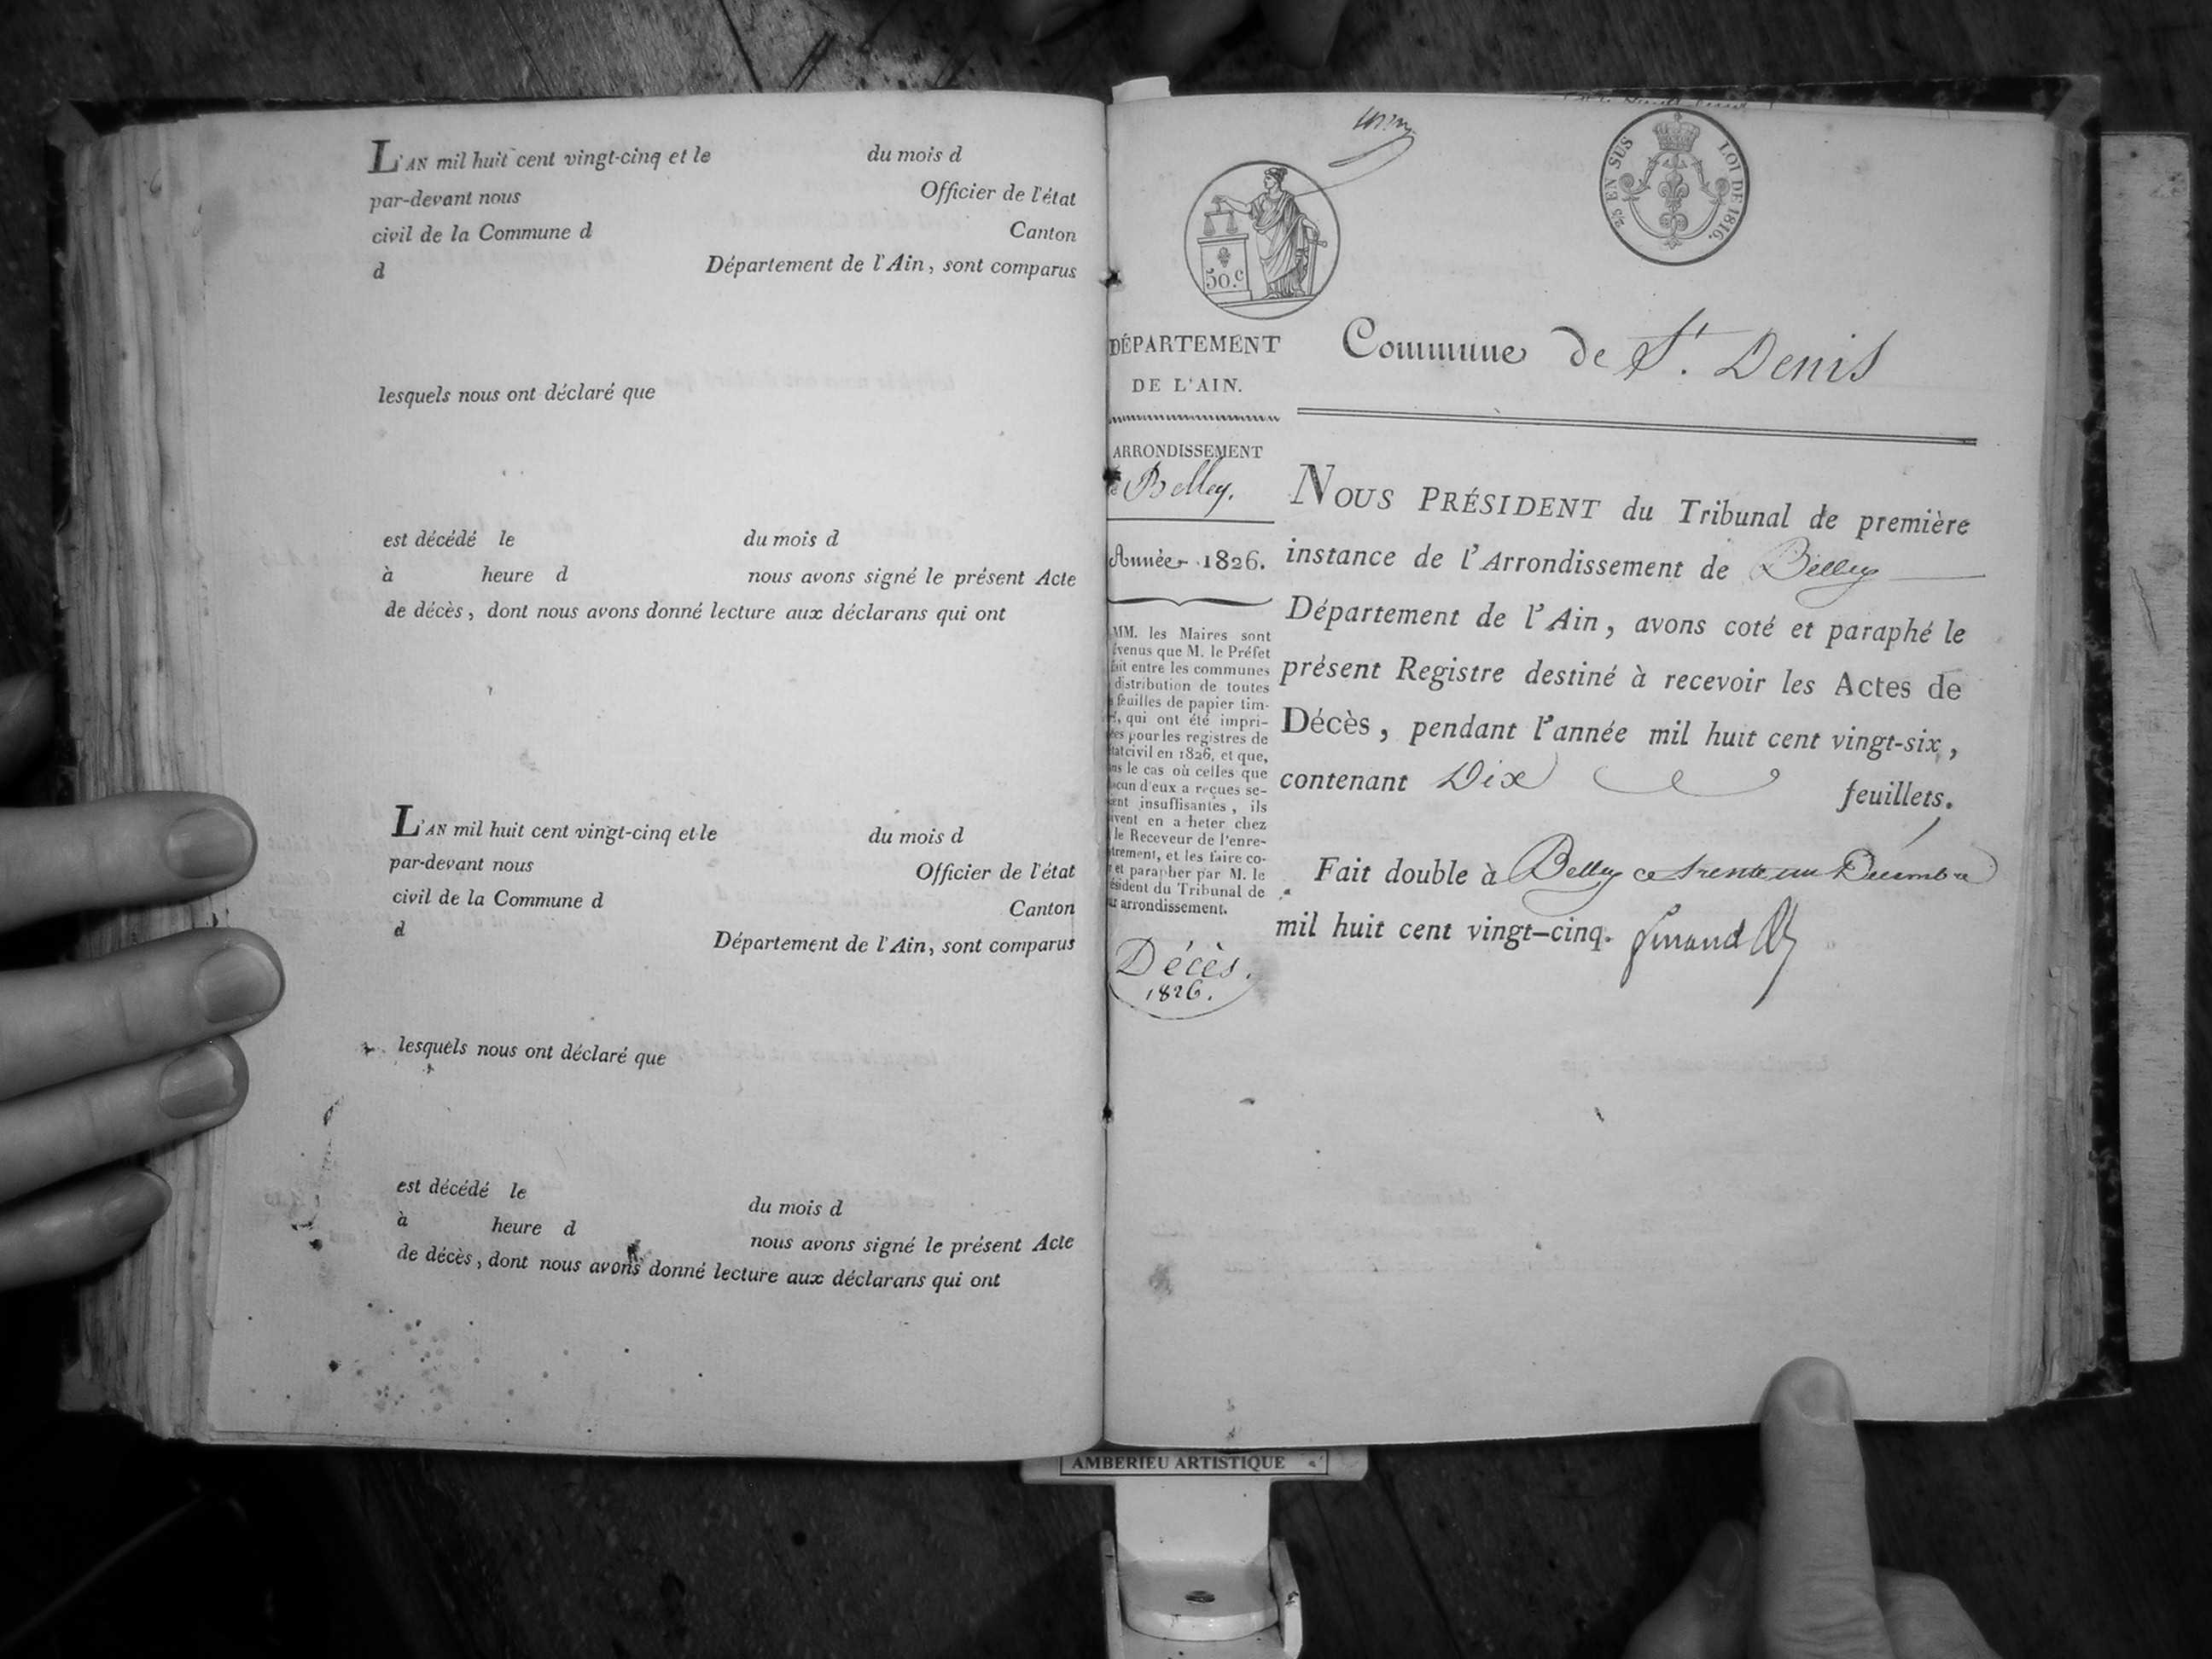 L'AN mil huit cent vingt-cinq et le du mois d
par-devant nous Officier de l'état
civil de la Commune d Canton
d Département de l'Ain, sont comparus
lesquels nous ont déclaré que
est décédé le du mois d
à heure d nous avons signé le présent Acte
de décès, dont nous avons donné lecture aux déclarans qui ont
L'AN mil huit cent vingt-cinq et le du mois d
par-devant nous Officier de l'état
civil de la Commune d Canton
d Département de l'Ain, sont comparus
lesquels nous ont déclaré que
est décédé le du mois d
à heure d nous avons signé le présent Acte
de décès, dont nous avons donné lecture aux déclarans qui ont
50.c
2/5 EN SUS LOI DE 1816.
DÉPARTEMENT
DE L'AIN.
ARRONDISSEMENT
Belley.
Année 1826.
MM. les Maires sont
que M. le Préfet
entre les communes
distribution de toutes
feuilles de papier tim-
qui ont été impri-
pour les registres de
civil en 1826, et que,
le cas où celles que
d'eux a reçues se-
insuffisantes, ils
en a heter chez
le Receveur de l'enre-
et les faire co-
et parapher par M. le
du Tribunal de
arrondissement.
Décès.
1826.
Commune de St. Denis
NOUS PRÉSIDENT du Tribunal de première
instance de l'Arrondissement de Belley
Département de l'Ain, avons coté et paraphé le
présent Registre destiné à recevoir les Actes de
Décès, pendant l'année mil huit cent vingt-six,
contenant Dix feuillets.
Fait double à Belley ce trente un Décembre
mil huit cent vingt-cinq.
AMBERIEU ARTISTIQUE